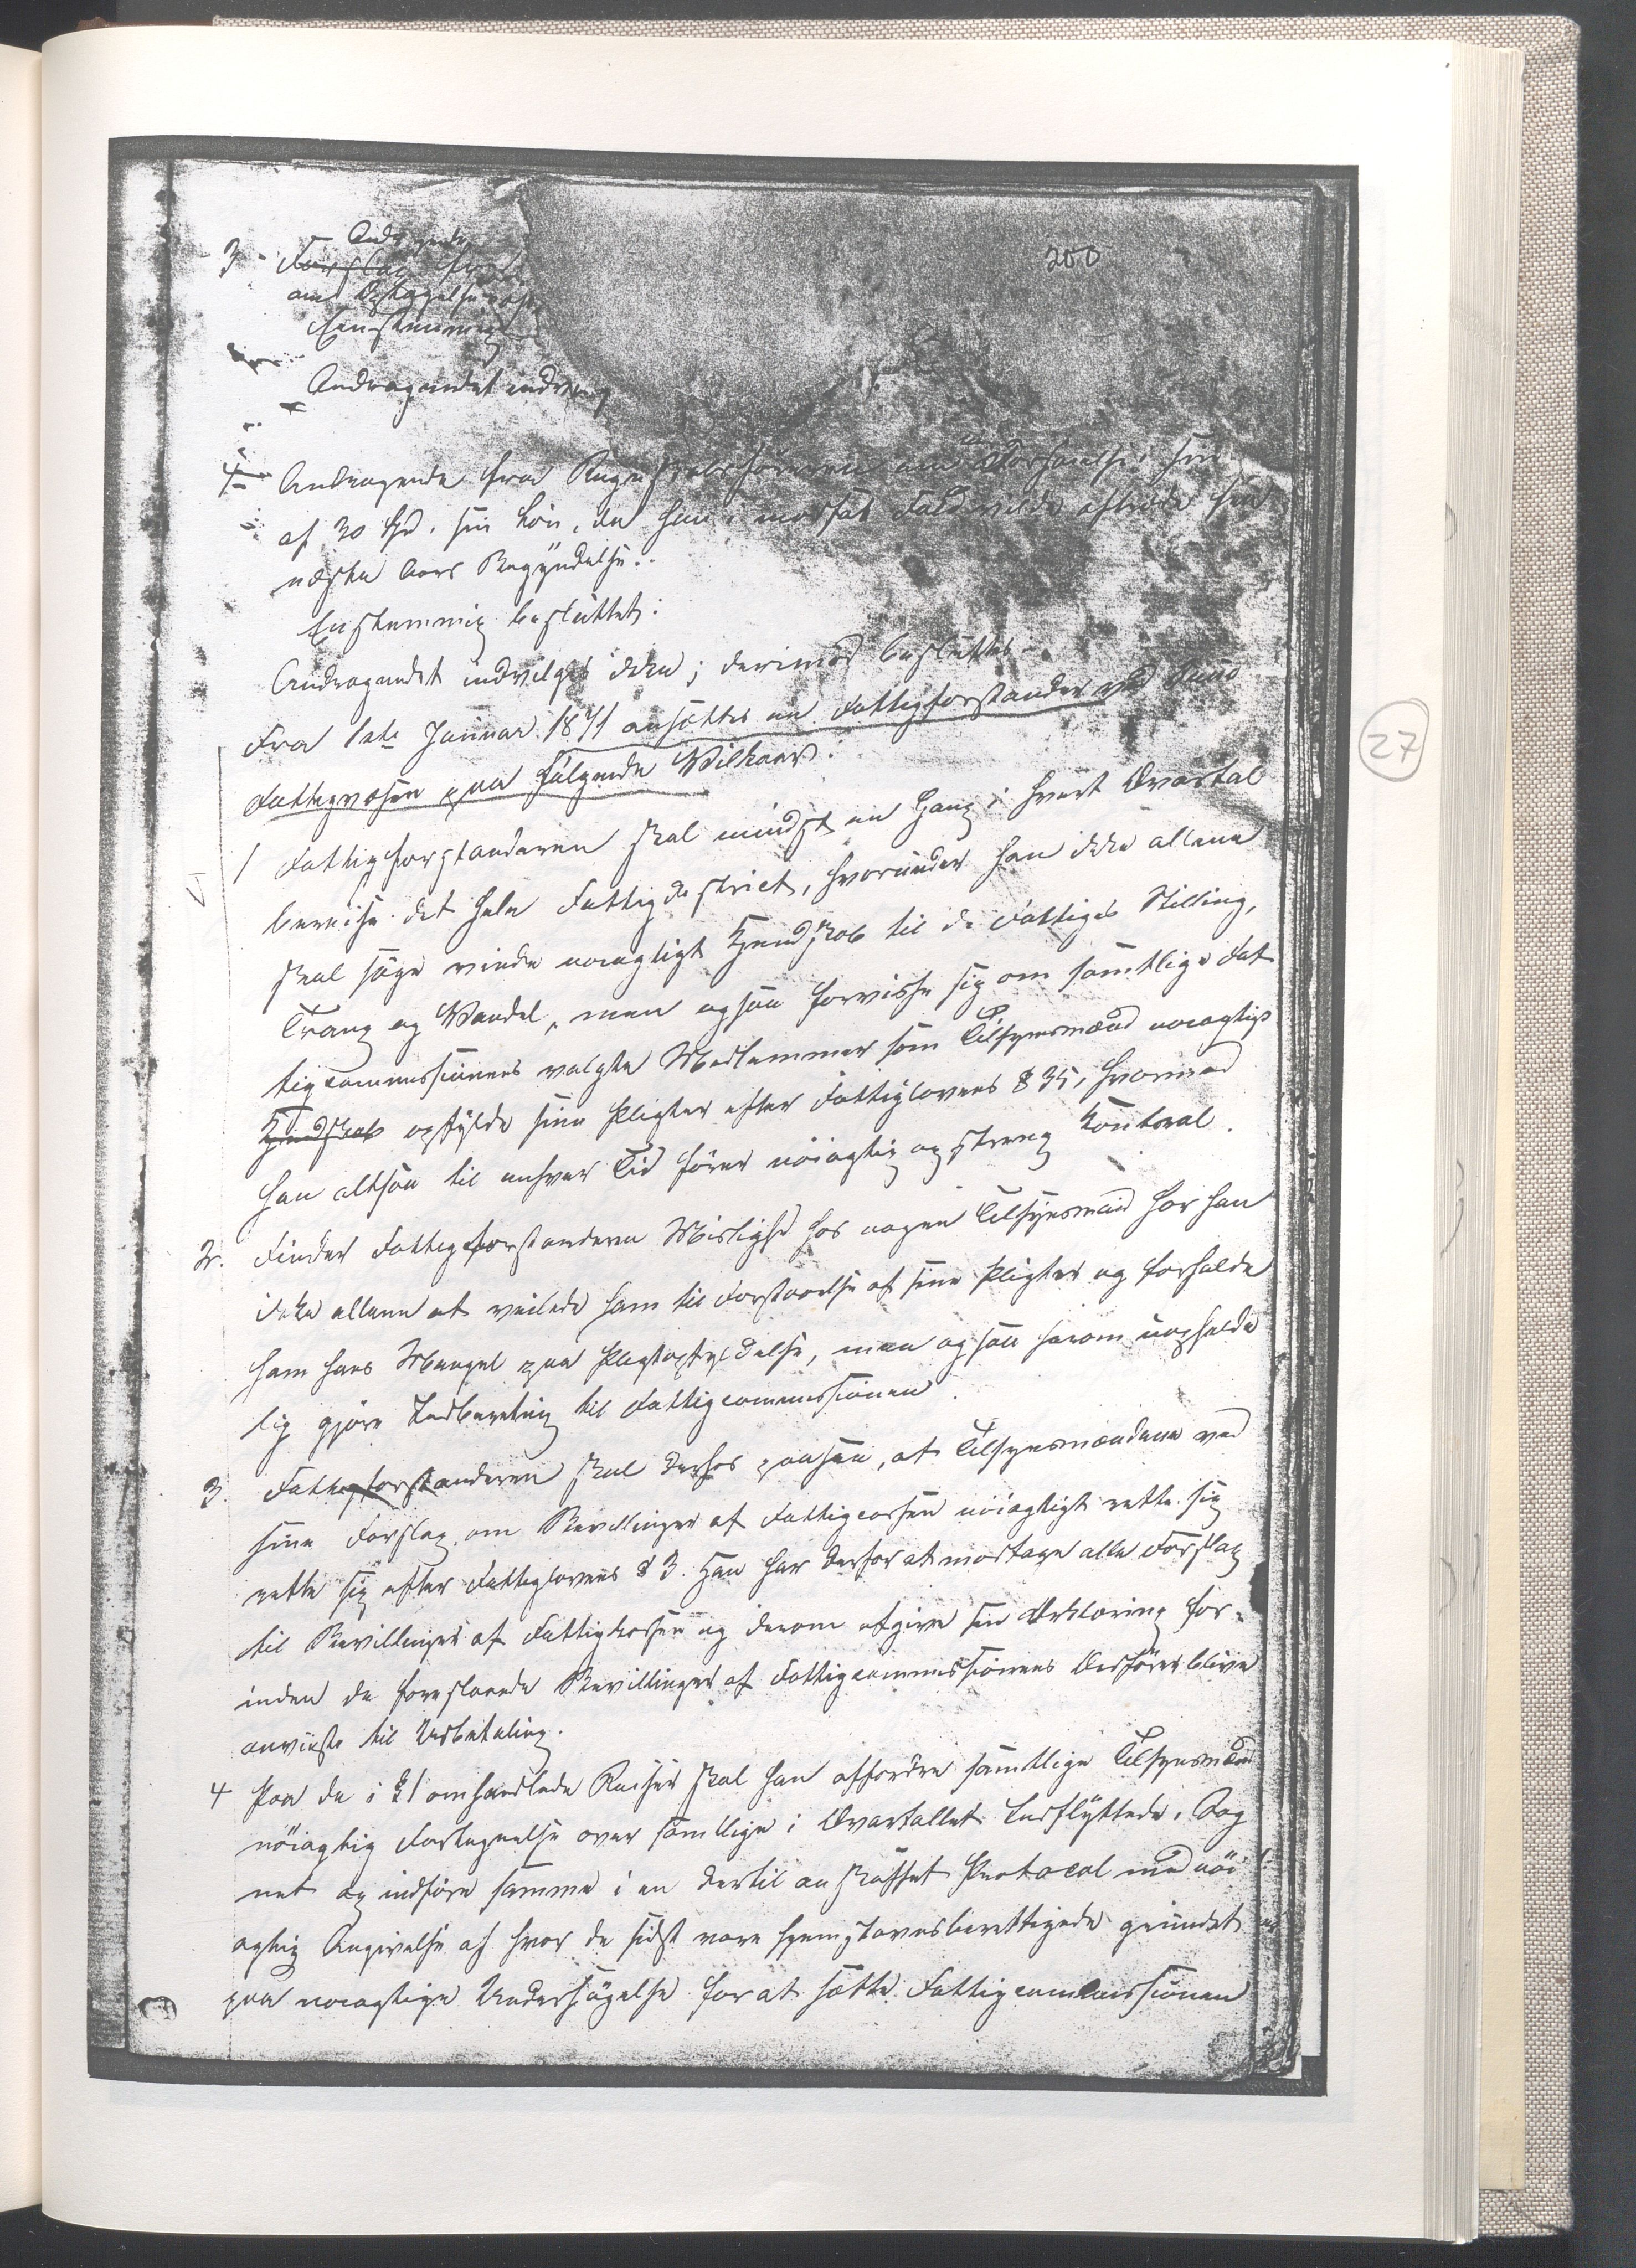 200
Andragende
3 - Forslag
om Optagelse
Eenstemmig
Andragendet indvilg
4 Andragende fra Regnskabsføreren om Forhøielse i sin
af 30 Spd. sin Løn, da han i modsat Fald vilde aftræde fra
næste Aars Begyndelse.
Enstemmig besluttet:
Andragendet indvilges ikke; derimod besluttes
Fra 1ste Januar 1871 ansættes en Fattigforstander ved Sund
Fattigvæsen paa følgende Vilkaar:
1 Fattigforstanderen skal mindst en Gang i hvert Qvartal
bereise det hele Fattigdistrict, hvorunder han ikke allene
skal søge vinde nøiagtigt Kjendskab til de Fattiges Stilling,
Trang og Vandel, men ogsaa forvisse sig om samtlige Fat
tigcommissionens valgte Medlemmer som Tilsynsmænd nøiagtigt
Kjendskab opfylde sine Pligter efter Fattiglovens § 35, hvormed
han altsaa til enhver Tid fører nøiagtig og streng Kontrol.
2. Finder Fattigforstanderen Mislighed hos nogen Tilsynsmand har han
ikke allene at veilede ham til Forstaaelse af sine Pligter og forholde
ham hans Mangel paa Pligtopfyldelse, men ogsaa herom uopholde
lig gjøre Indberetning til Fattigcommissionen.
3. Fattigforstanderen skal derhos paasee, at Tilsynsmændene ved
sine Forslag om Bevillinger af Fattigcassen nøiagtigt rette sig
rette sig efter Fattiglovens § 3. Han har derfor at modtage alle Forslag
til Bevillinger af Fattigkassen og derom afgive sin Erklæring for-
inden de foreslaaede Bevillinger af Fattigcommissionens Ordfører blive
anviiste til Udbetaling.
4 Paa de i § 1 omhandlede Reiser skal han affordre samtlige Tilsynsmænd
nøiagtig Fortegnelse over samtlige i Qvartallet Indflyttede i Sog
net og indføre samme i en dertil anskaffet Protocol med nøi
agtig Angivelse af hvor de sidst vare hjemstavnsberettigede grundet
paa nøiagtige Undersøgelse for at sætte Fattigcommissionen
27